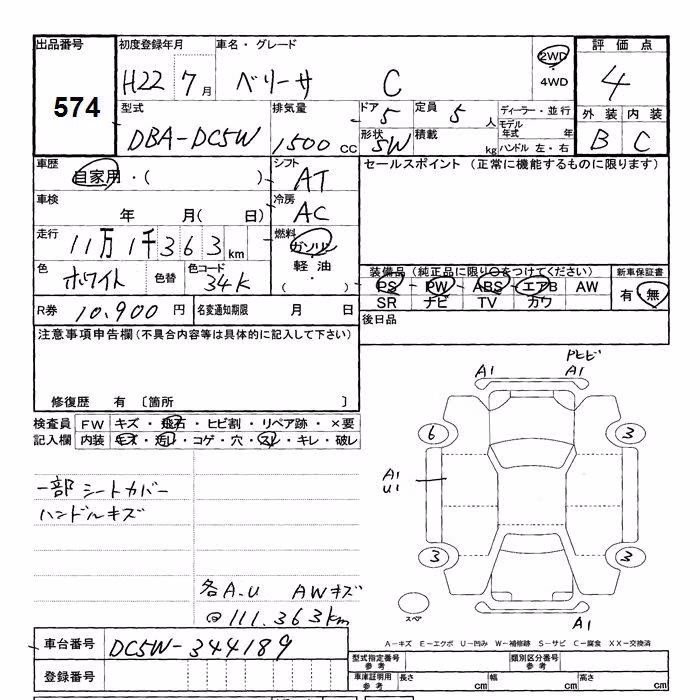 出品番号 初度登録年月 車名・グレード 2WD 4WD 評価点
574 H22 7月 ベリーサ C 4
型式 排気量 ドア 5 定員 5人 ディーラー・並行 外装 内装
DBA-DC5W 1500cc 形状 SW 積載 kg モデル年式 年 ハンドル 左・右 B C
車歴 自家用・( ) シフト AT セールスポイント (正常に機能するものに限ります)
車検 年 月( 日) 冷房 AC
走行 11万1千363km 燃料 ガソリン 軽油 ( )
色 ホワイト 色替 色コード 34K
装備品 (純正品に限り○をつけてください) 新車保証書
PS PW ABS エアB AW 有 無
SR ナビ TV カワ
R券 10,900円 名変通知期限 月 日
後日品
注意事項申告欄 (不具合内容等は具体的に記入して下さい)
修復歴 有 〔箇所 〕
検査員 FW キズ・飛石・ヒビ割・リペア跡・×要
記入欄 内装 キズ・汚レ・コゲ・穴・スレ・キレ・破レ
一部シートカバー
ハンドルキズ
各A.U AWキズ
@111.363km
A1 A1
6 3
A1
U1
3 3
スペア
A1
A-キズ E-エクボ U-凹み W-補修跡 S-サビ C-腐食 XX-交換済
車台番号 DC5W-344189
登録番号
型式指定番号 参考 類別区分番号 参考
車庫証明用 参考 長さ cm 幅 cm 高さ cm